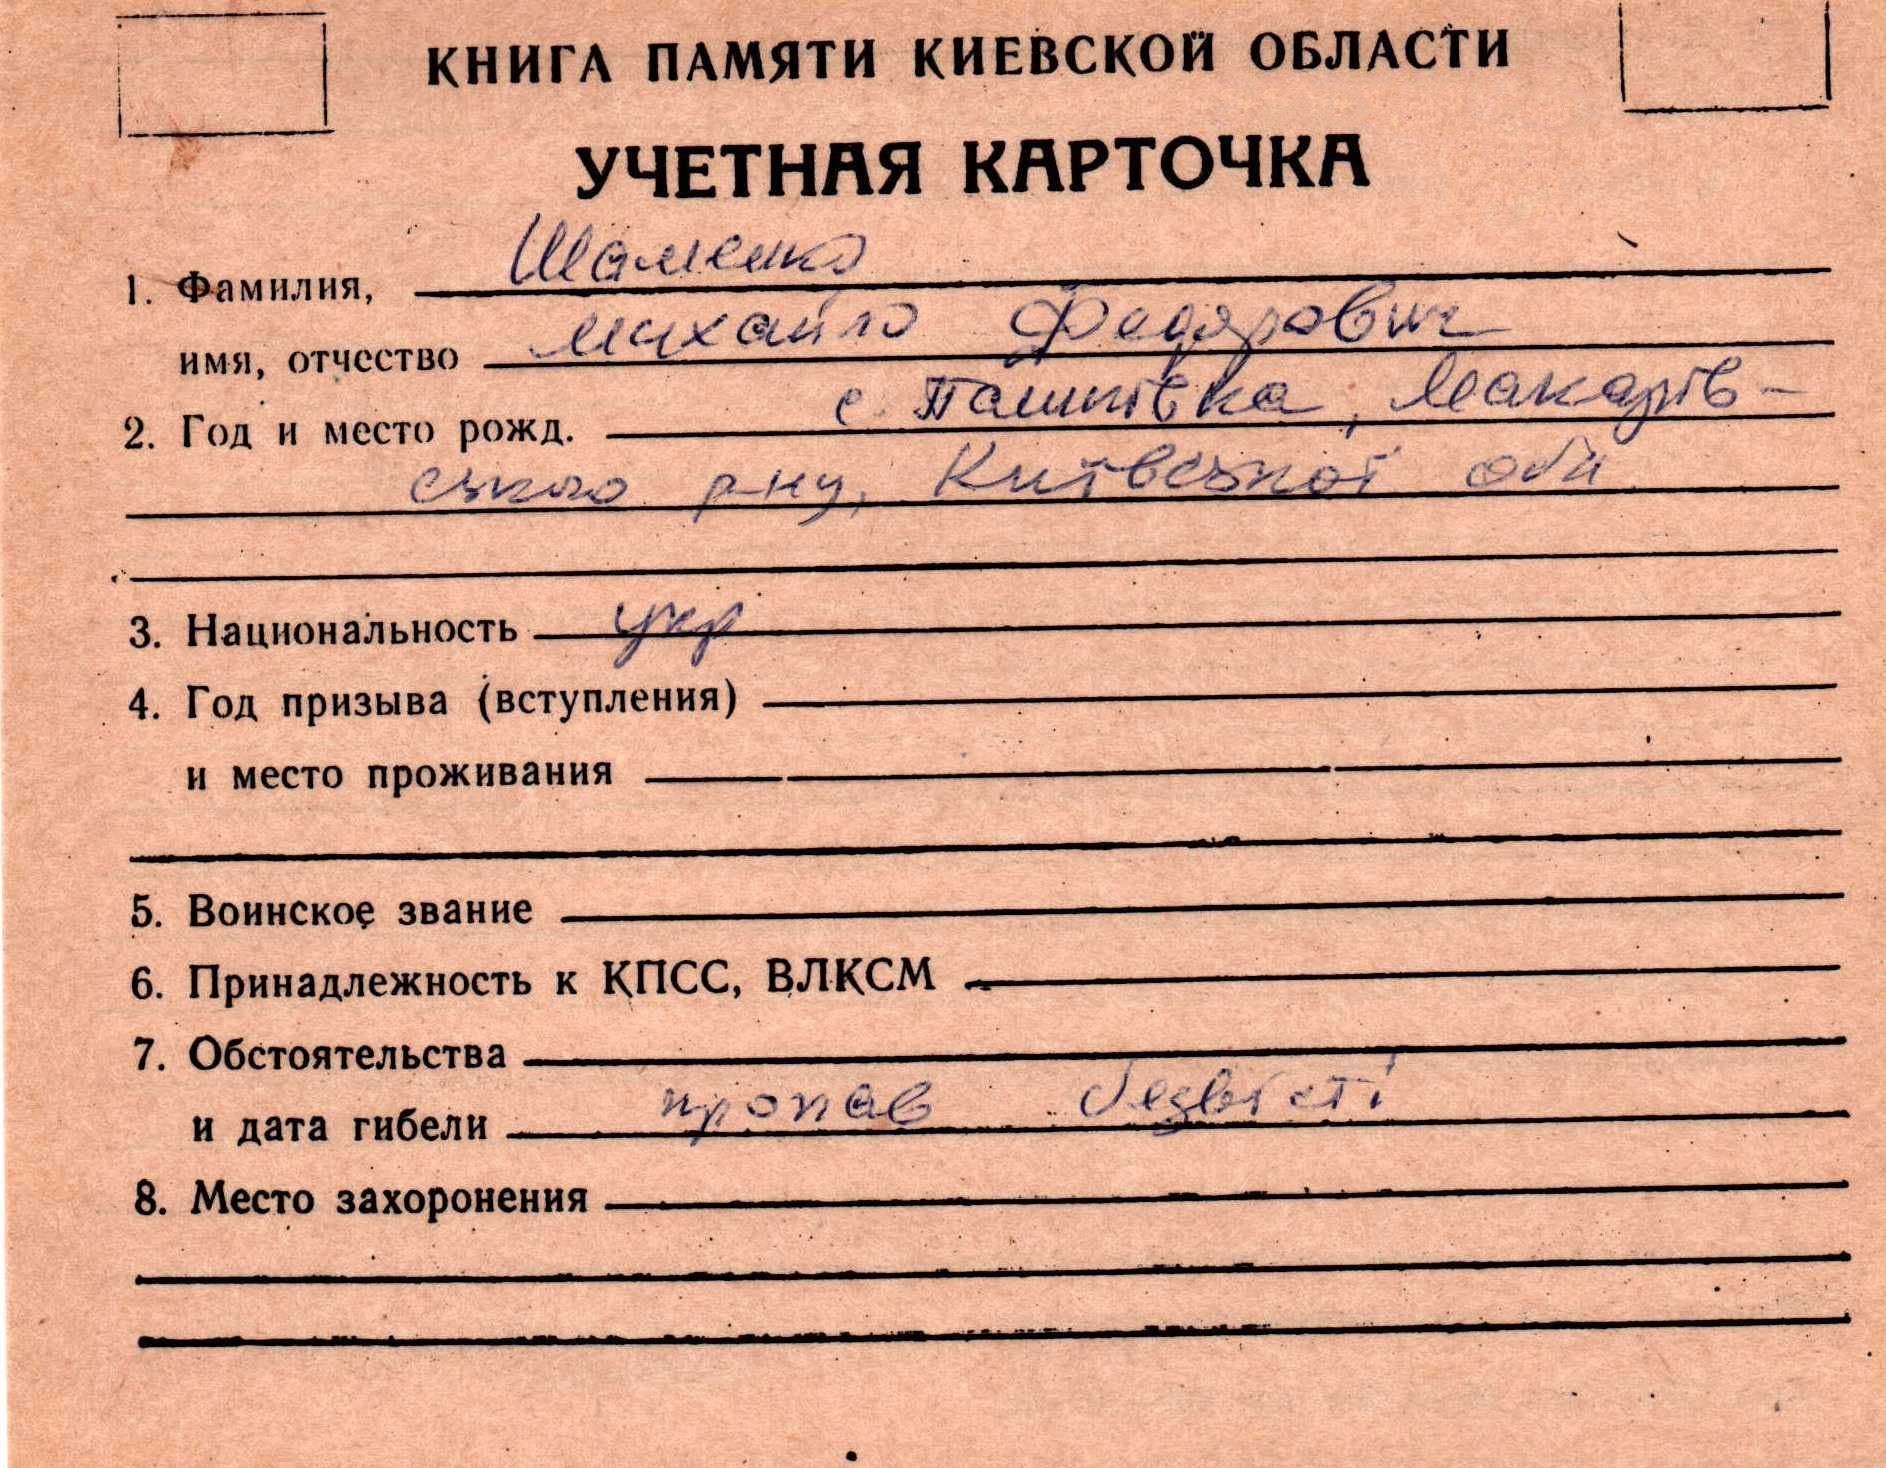 КНИГА ПАМЯТИ КИЕВСКОЙ ОБЛАСТИ
УЧЕТНАЯ КАРТОЧКА
1. Фамилия, Шаменко
имя, отчество Михайло Федорович
2. Год и место рожд. с. Пашківка, Макарів-
ського р-ну, Київської обл
3. Национальность укр
4. Год призыва (вступления)
и место проживания
5. Воинское звание
6. Принадлежность к КПСС, ВЛКСМ
7. Обстоятельства
и дата гибели пропав безвісті
8. Место захоронения